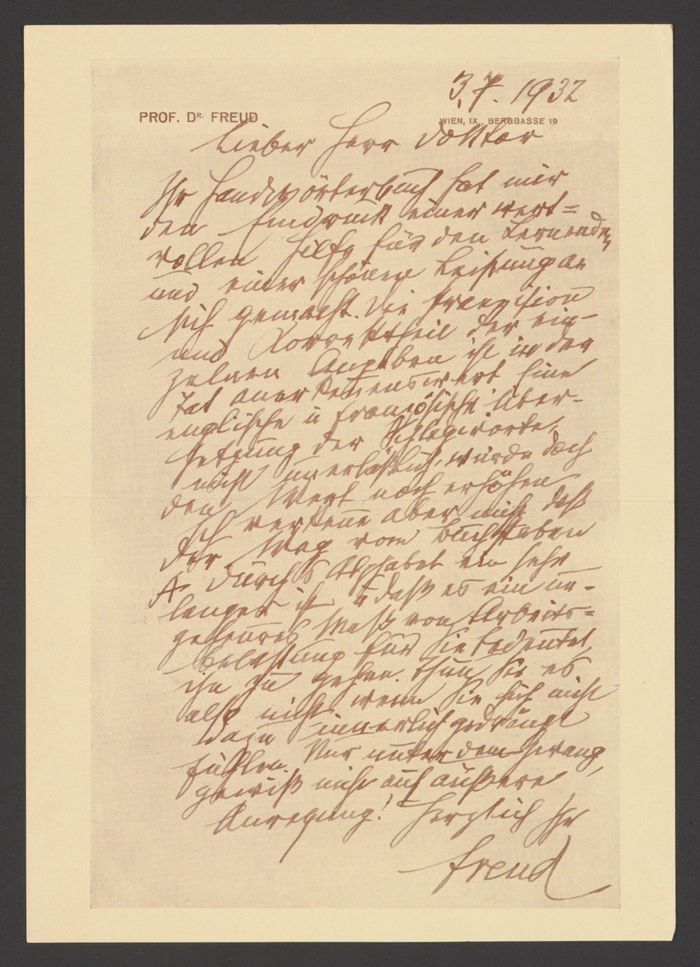 3.7.1932
PROF. DR. FREUD
WIEN, IX., BERGGASSE 19
Lieber Herr Doktor
Ihr Handwörterbuch hat mir
den Eindruck einer wert=
vollen Hilfe für den Lernenden
und einer schönen Leistung an
sich gemacht. Die Praezision
und Korrektheit der ein-
zelnen Angaben ist in der
Tat anerkennenswert. Eine
englische u französische Über-
setzung der Schlagworte,
nicht unerläßlich, würde doch
den Wert noch erhöhen
Ich verkenne aber nicht daß
der Weg vom Buchstaben
A durchs Alphabet ein sehr
langer ist u daß es ein un-
geheures Maß von Arbeits=
belastung für Sie bedeutet,
ihn zu gehen. Thun Sie es
also nicht wenn Sie sich nicht
dazu innerlich gedrängt
fühlen. Nur unter dem Zwang,
gewiß nicht auf äußere
Anregung! Herzlich Ihr
Freud